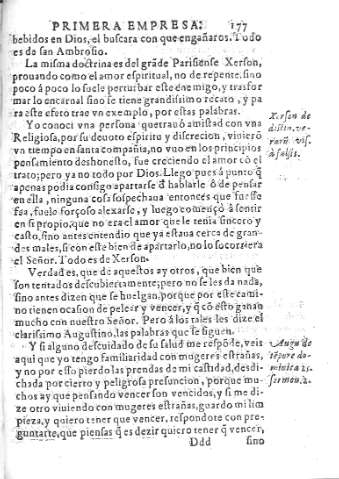 PRIMERA EMPRESA. 177
bebidos en Dios, el buscara con que engañaros. Todo
es de san Ambrosio.
La misma doctrina es del grãde Parisiense Xerson,
prouando como el amor espiritual, no de repente, sino
poco à poco lo suele perturbar este enemigo, y trasfor
mar lo en carnal sino se tiene grandissimo recato, y pa
ra este efeto trae vn exemplo, por estas palabras.
Xerson de
distin. ve-
rarũ vis.
à falsis.
Yo conoci vna persona que trauò amistad con vna
Religiosa, por su deuoto espiritu y discrecion, viuierõ
vn tiempo en santa compañia, no vuo en los principios
pensamiento deshonesto, fue creciendo el amor cõ el
trato; pero ya no todo por Dios. Llego pues à punto q̃
apenas podia consigo apartarse õ hablarle ô de pensar
en ella, ninguna cosa sospechaua entonces que fuesse
fea, fuele forçoso alexarse, y luego començò à sentir
en si propio, que no era el amor que le tenia sincero y
casto, sino antes entendio que ya estaua cerca de gran-
des males, si con este bien de apartarlo, no lo socorriera
el Señor. Todo es de Xerson.
Verdad es, que de aquestos ay otros, que bien que
son tentados descubiertamente; pero no se les da nada,
sino antes dizen que se huelgan, porque por este cami-
no tienen ocasion de pelear y vencer, y q̃ cõ esto ganan
mucho con nuestro Señor. Pero à los tales les dize el
clarissimo Augustino, las palabras que se siguen.
Augu. de
tẽpore do-
minica 15.
sermon. 2.
Y si alguno descuidado de su salud me respõde, veis
aqui que yo tengo familiaridad con mugeres estrañas,
y no por esso pierdo las prendas de mi castidad, desdi-
chada por cierto y peligrosa presuncion, porque mu-
chos ay que pensando vencer son vencidos, y si me di-
ze otro viuiendo con mugeres estrañas, guardo mi lim
pieza, y quiero tener que vencer, respondote con pre-
guntarte, que piensas q̃ es dezir quiero tener q̃ vencer,
Ddd sino